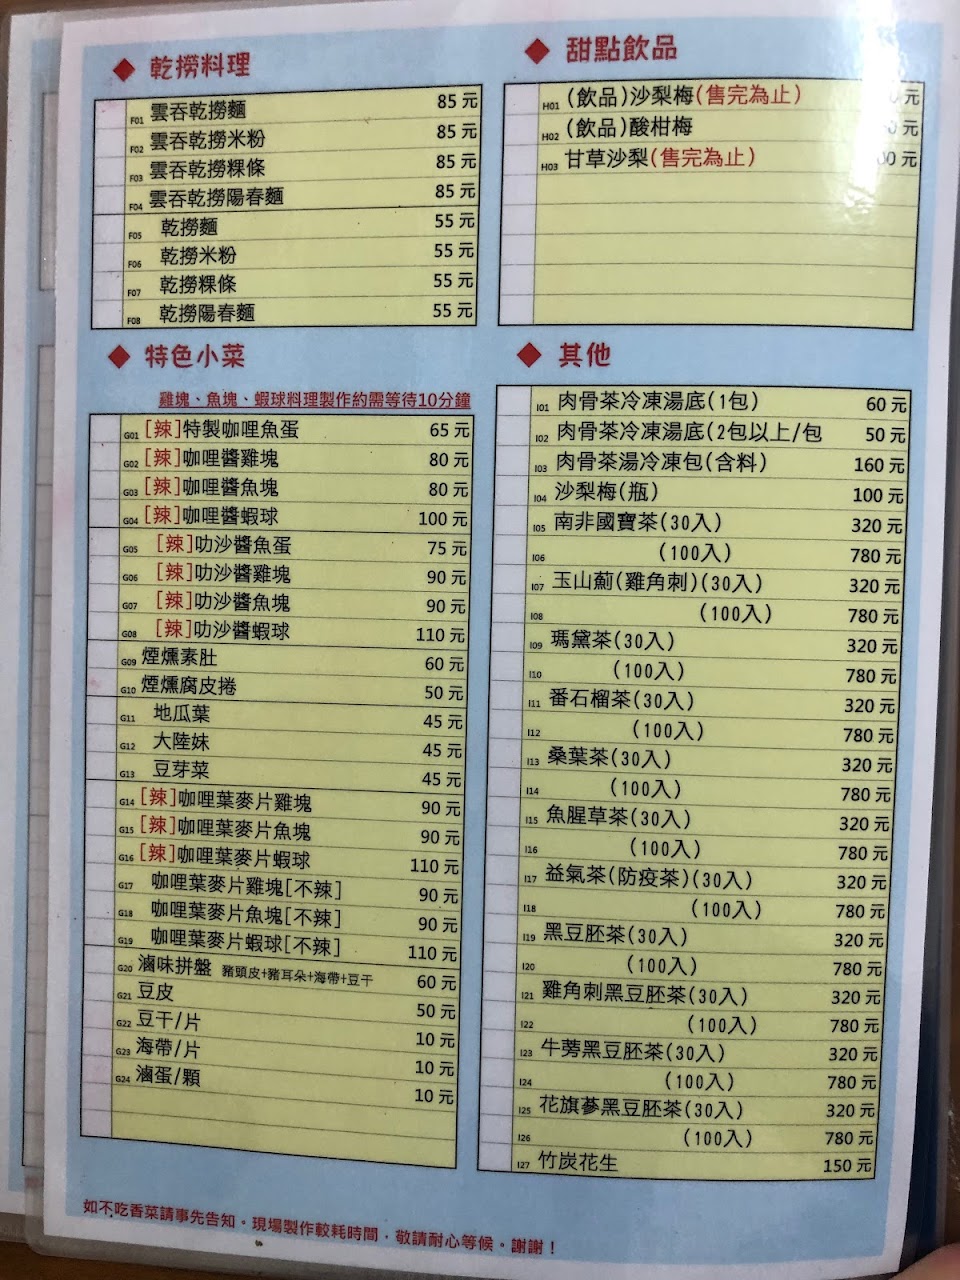 ◆ 乾撈料理
F01 雲吞乾撈麵 85 元
F02 雲吞乾撈米粉 85 元
F03 雲吞乾撈粿條 85 元
F04 雲吞乾撈陽春麵 85 元
F05 乾撈麵 55 元
F06 乾撈米粉 55 元
F07 乾撈粿條 55 元
F08 乾撈陽春麵 55 元
◆ 特色小菜
雞塊、魚塊、蝦球料理製作約需等待10分鐘
G01 [辣]特製咖哩魚蛋 65 元
G02 [辣]咖哩醬雞塊 80 元
G03 [辣]咖哩醬魚塊 80 元
G04 [辣]咖哩醬蝦球 100 元
G05 [辣]叻沙醬魚蛋 75 元
G06 [辣]叻沙醬雞塊 90 元
G07 [辣]叻沙醬魚塊 90 元
G08 [辣]叻沙醬蝦球 110 元
G09 煙燻素肚 60 元
G10 煙燻腐皮捲 50 元
G11 地瓜葉 45 元
G12 大陸妹 45 元
G13 豆芽菜 45 元
G14 [辣]咖哩葉麥片雞塊 90 元
G15 [辣]咖哩葉麥片魚塊 90 元
G16 [辣]咖哩葉麥片蝦球 110 元
G17 咖哩葉麥片雞塊[不辣] 90 元
G18 咖哩葉麥片魚塊[不辣] 90 元
G19 咖哩葉麥片蝦球[不辣] 110 元
G20 滷味拼盤 豬頭皮+豬耳朵+海帶+豆干 60 元
G21 豆皮 50 元
G22 豆干/片 10 元
G23 海帶/片 10 元
G24 滷蛋/顆 10 元
◆ 甜點飲品
H01 (飲品)沙梨梅(售完為止) 元
H02 (飲品)酸柑梅 元
H03 甘草沙梨(售完為止) 元
◆ 其他
I01 肉骨茶冷凍湯底(1包) 60 元
I02 肉骨茶冷凍湯底(2包以上/包 50 元
I03 肉骨茶湯冷凍包(含料) 160 元
I04 沙梨梅(瓶) 100 元
I05 南非國寶茶(30入) 320 元
I06 (100入) 780 元
I07 玉山薊(雞角刺)(30入) 320 元
I08 (100入) 780 元
I09 瑪黛茶(30入) 320 元
I10 (100入) 780 元
I11 番石榴茶(30入) 320 元
I12 (100入) 780 元
I13 桑葉茶(30入) 320 元
I14 (100入) 780 元
I15 魚腥草茶(30入) 320 元
I16 (100入) 780 元
I17 益氣茶(防疫茶)(30入) 320 元
I18 (100入) 780 元
I19 黑豆胚茶(30入) 320 元
I20 (100入) 780 元
I21 雞角刺黑豆胚茶(30入) 320 元
I22 (100入) 780 元
I23 牛蒡黑豆胚茶(30入) 320 元
I24 (100入) 780 元
I25 花旗蔘黑豆胚茶(30入) 320 元
I26 (100入) 780 元
I27 竹炭花生 150 元
如不吃香菜請事先告知。現場製作較耗時間，敬請耐心等候。謝謝！